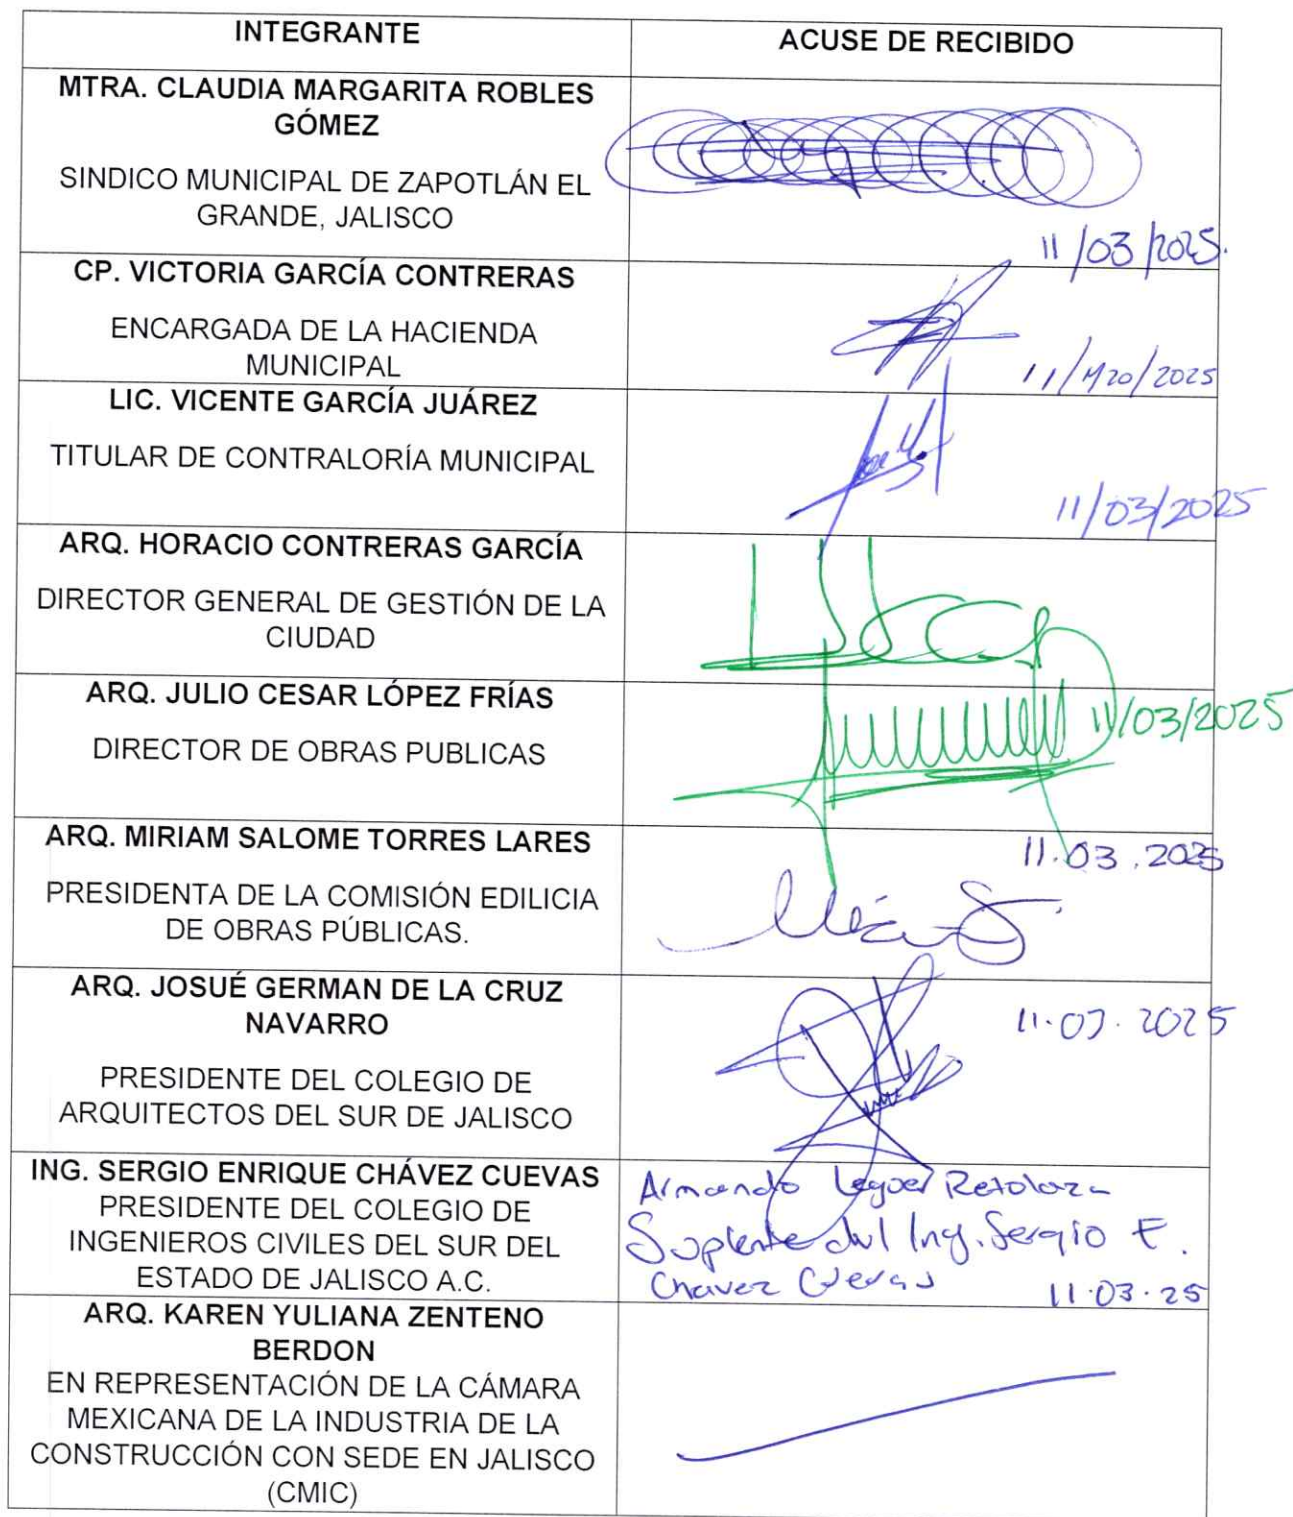 INTEGRANTE
ACUSE DE RECIBIDO
MTRA. CLAUDIA MARGARITA ROBLES
GÓMEZ
SINDICO MUNICIPAL DE ZAPOTLÁN EL
GRANDE, JALISCO
11/03/2025.
CP. VICTORIA GARCÍA CONTRERAS
ENCARGADA DE LA HACIENDA
MUNICIPAL
11/Mzo/2025
LIC. VICENTE GARCÍA JUÁREZ
TITULAR DE CONTRALORÍA MUNICIPAL
11/03/2025
ARQ. HORACIO CONTRERAS GARCÍA
DIRECTOR GENERAL DE GESTIÓN DE LA
CIUDAD
ARQ. JULIO CESAR LÓPEZ FRÍAS
DIRECTOR DE OBRAS PUBLICAS
11/03/2025
ARQ. MIRIAM SALOME TORRES LARES
PRESIDENTA DE LA COMISIÓN EDILICIA
DE OBRAS PÚBLICAS.
11.03.2025
ARQ. JOSUÉ GERMAN DE LA CRUZ
NAVARRO
PRESIDENTE DEL COLEGIO DE
ARQUITECTOS DEL SUR DE JALISCO
11.03.2025
ING. SERGIO ENRIQUE CHÁVEZ CUEVAS
PRESIDENTE DEL COLEGIO DE
INGENIEROS CIVILES DEL SUR DEL
ESTADO DE JALISCO A.C.
Armando Retolaza
Suplente del Ing. Sergio E.
Chavez Cuevas 11.03.25
ARQ. KAREN YULIANA ZENTENO
BERDON
EN REPRESENTACIÓN DE LA CÁMARA
MEXICANA DE LA INDUSTRIA DE LA
CONSTRUCCIÓN CON SEDE EN JALISCO
(CMIC)